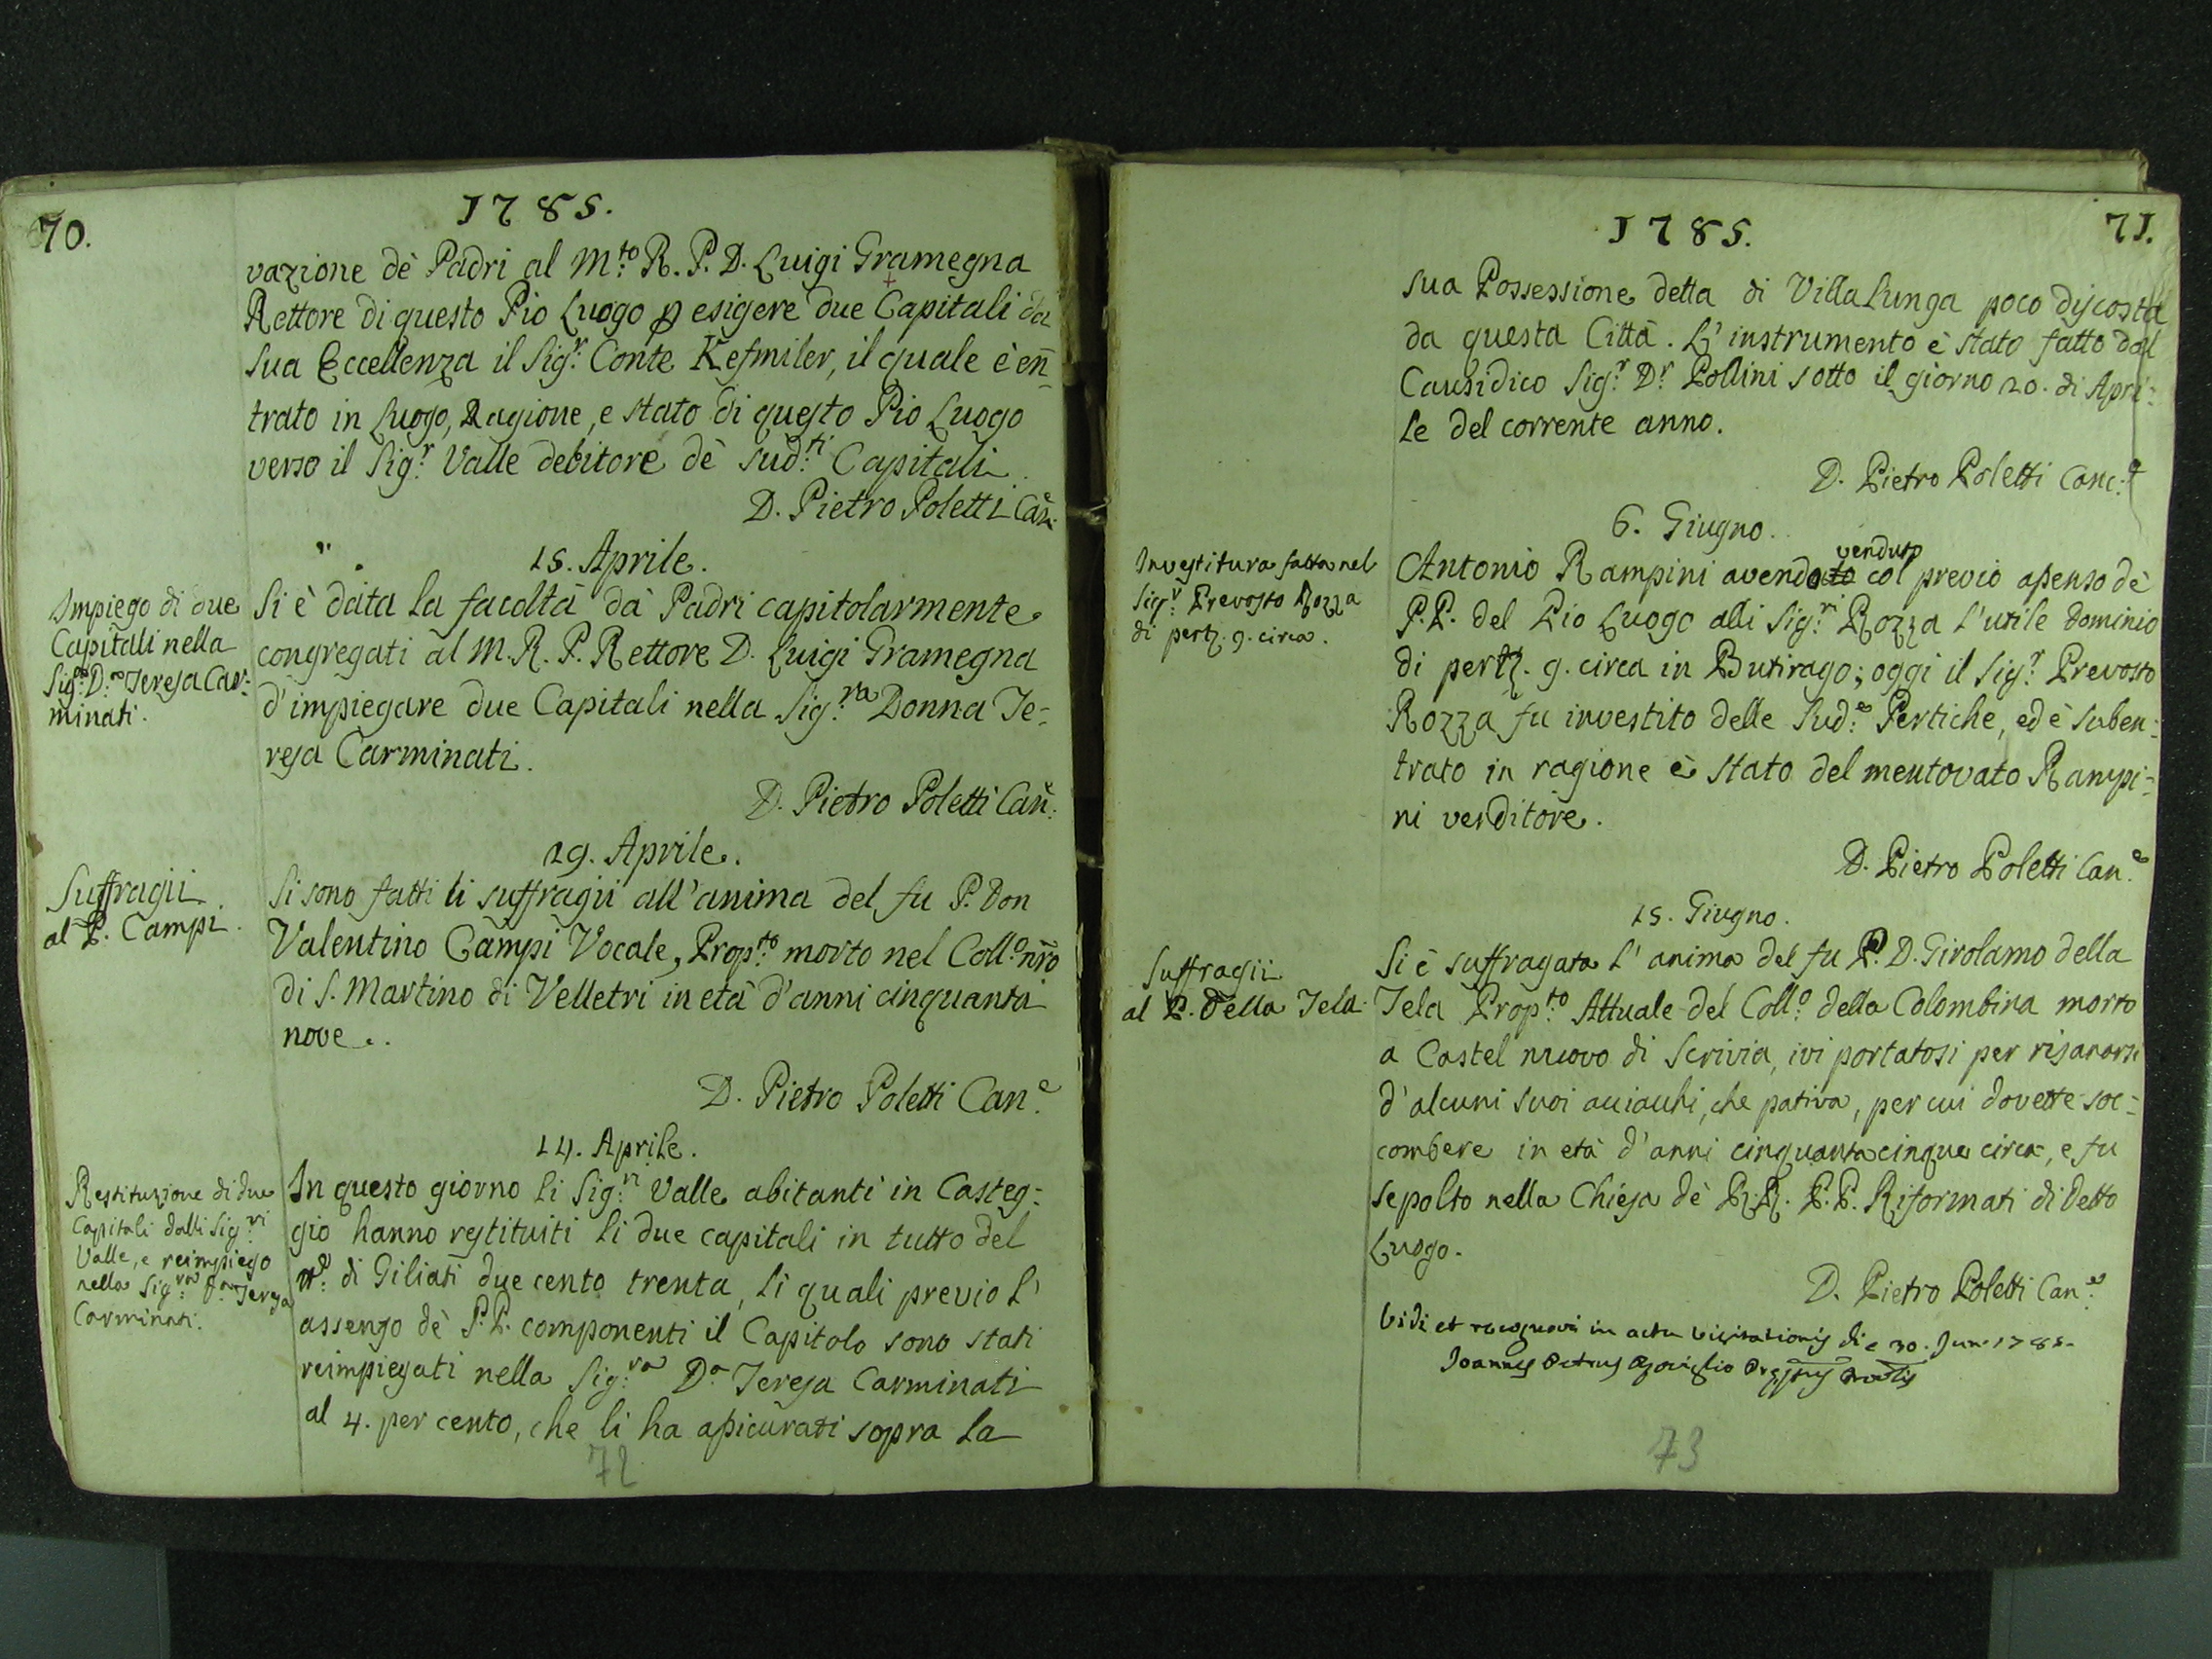 70.
1785.
vazione dè Padri al M.to R. P. D. Luigi Gramegna
Rettore di questo Pio Luogo p esigere due Capitali da
sua Eccellenza il Sig.r Conte Kefmiler, il quale è en=
trato in Luogo, Ragione, e stato di questo Pio Luogo
verso il Sig.r Valle debitore dè sud.ti Capitali.
D. Pietro Poletti Can.e
15. Aprile.
Impiego di due
Capitali nella
Sig.ra D.a Teresa Car=
minati.
Si è data la facoltà dà Padri capitolarmente
congregati al M. R. P. Rettore D. Luigi Gramegna
d'impiegare due Capitali nella Sig.ra Donna Te=
resa Carminati.
D. Pietro Poletti Can.e
29. Aprile.
Suffragii
al P. Campi.
Si sono fatti li suffragii all'anima del fu P. Don
Valentino Campi Vocale, Prop.to morto nel Coll.o nro
di S. Martino di Velletri in età d'anni cinquanta
nove.
D. Pietro Poletti Can.e
14. Aprile.
Restituzione di due
Capitali dalli Sig.ri
Valle, e reimpiego
nella Sig.ra D.a Teresa
Carminati.
In questo giorno li Sig.ri Valle abitanti in Casteg=
gio hanno restituiti li due capitali in tutto del
n.o di Giliati due cento trenta, li quali previo l'
assenso dè P.P. componenti il Capitolo sono stati
reimpiegati nella Sig.ra D.a Teresa Carminati
al 4. per cento, che li ha assicurati sopra la
72
71.
1785.
sua Possessione detta di Villa Lunga poco discosta
da questa Città. L'instrumento è stato fatto dal
Causidico Sig.r D.r Pollini sotto il giorno 20. di Apri=
le del corrente anno.
D. Pietro Poletti Canc.e
6. Giugno.
Investitura fatta nel
Sig.r Prevosto Rozza
di pertz. 9. circa.
venduto
Antonio Rampini avendo col previo assenso dè
P.P. del Pio Luogo alli Sig.ri Rozza l'utile dominio
di pertz. 9. circa in Butirago; oggi il Sig.r Prevosto
Rozza fu investito delle sud.e Pertiche, ed è suben=
trato in ragione è stato del mentovato Rampi=
ni venditore.
D. Pietro Poletti Can.e
15. Giugno.
Suffragii
al P. Della Tela.
Si è suffragata l'anima del fu P. D. Girolamo della
Tela Prop.to Attuale del Coll.o della Colombina morto
a Castel nuovo di Scrivia, ivi portatosi per risanarsi
d'alcuni suoi acciachi, che pativa, per cui dovette soc=
combere in età d'anni cinquantacinque circa, e fu
sepolto nella Chiesa dè R.R. P.P. Riformati di detto
Luogo.
D. Pietro Poletti Can.e
Vidi et recognovi in actu visitationis die 30. Jun. 1785.
Joannes Petrus
73